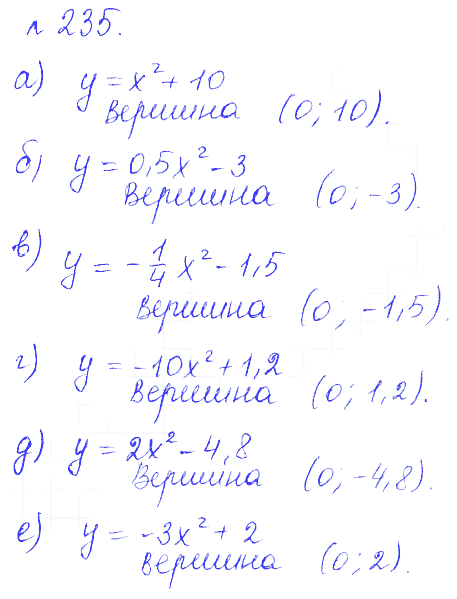 л 235.
а) y = x² + 10
вершина (0; 10).
б) y = 0,5x² - 3
вершина (0; -3).
в) y = -1/4 x² - 1,5
вершина (0; -1,5).
г) y = -10x² + 1,2
вершина (0; 1,2).
д) y = 2x² - 4,8
вершина (0; -4,8).
е) y = -3x² + 2
вершина (0; 2).